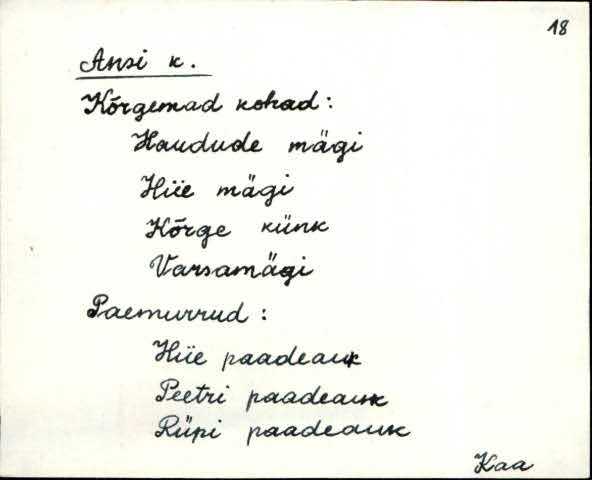 18
Ansi k.
Kõrgemad kohad:
Haudude mägi
Hiie mägi
Kõrge künk
Varsamägi
Paemurrud:
Hiie paadeauk
Peetri paadeauk
Rüpi paadeauk
Kaa